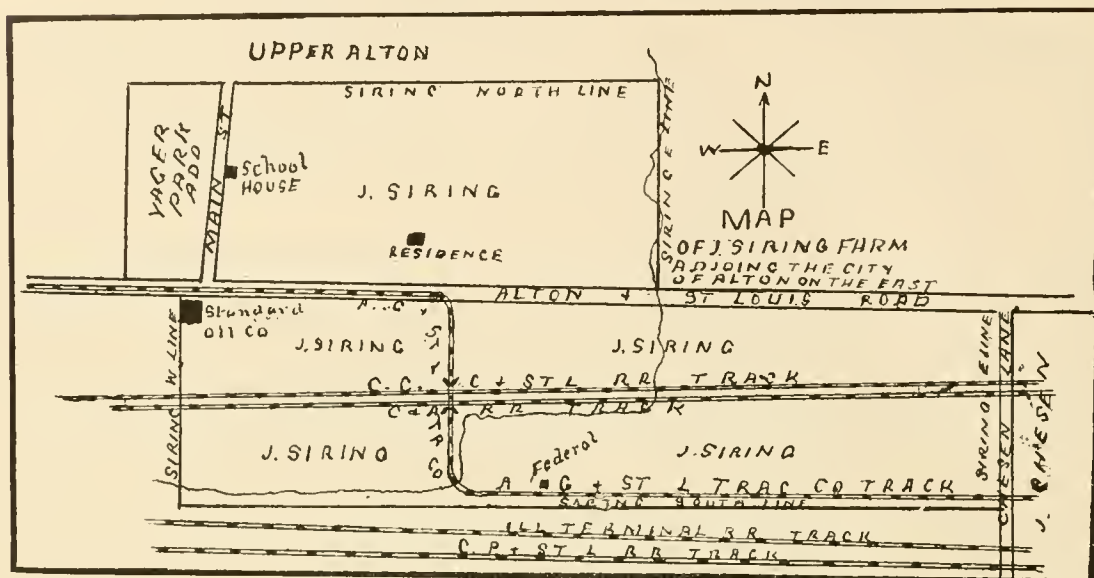 UPPER ALTON
SIRING NORTH LINE
YAGER
PARK
ADD
MAIN ST
School
HOUSE
J. SIRING
RESIDENCE
SIRING E LINE
N
W
E
MAP
OF J. SIRING FARM
ADJOING THE CITY
OF ALTON ON THE EAST
ALTON & ST LOUIS ROAD
Standard
Oil Co
A. G. & ST L TRAC CO
SIRING W LINE
J. SIRING
J. SIRING
C. C. C & ST L RR TRACK
C & A RR TRACK
J. SIRING
Federal
J. SIRING
SIRING E LINE
LANE
J.
A G & ST L TRAC CO TRACK
SIRING SOUTH LINE
ILL TERMINAL RR TRACK
C. P & ST L RR TRACK